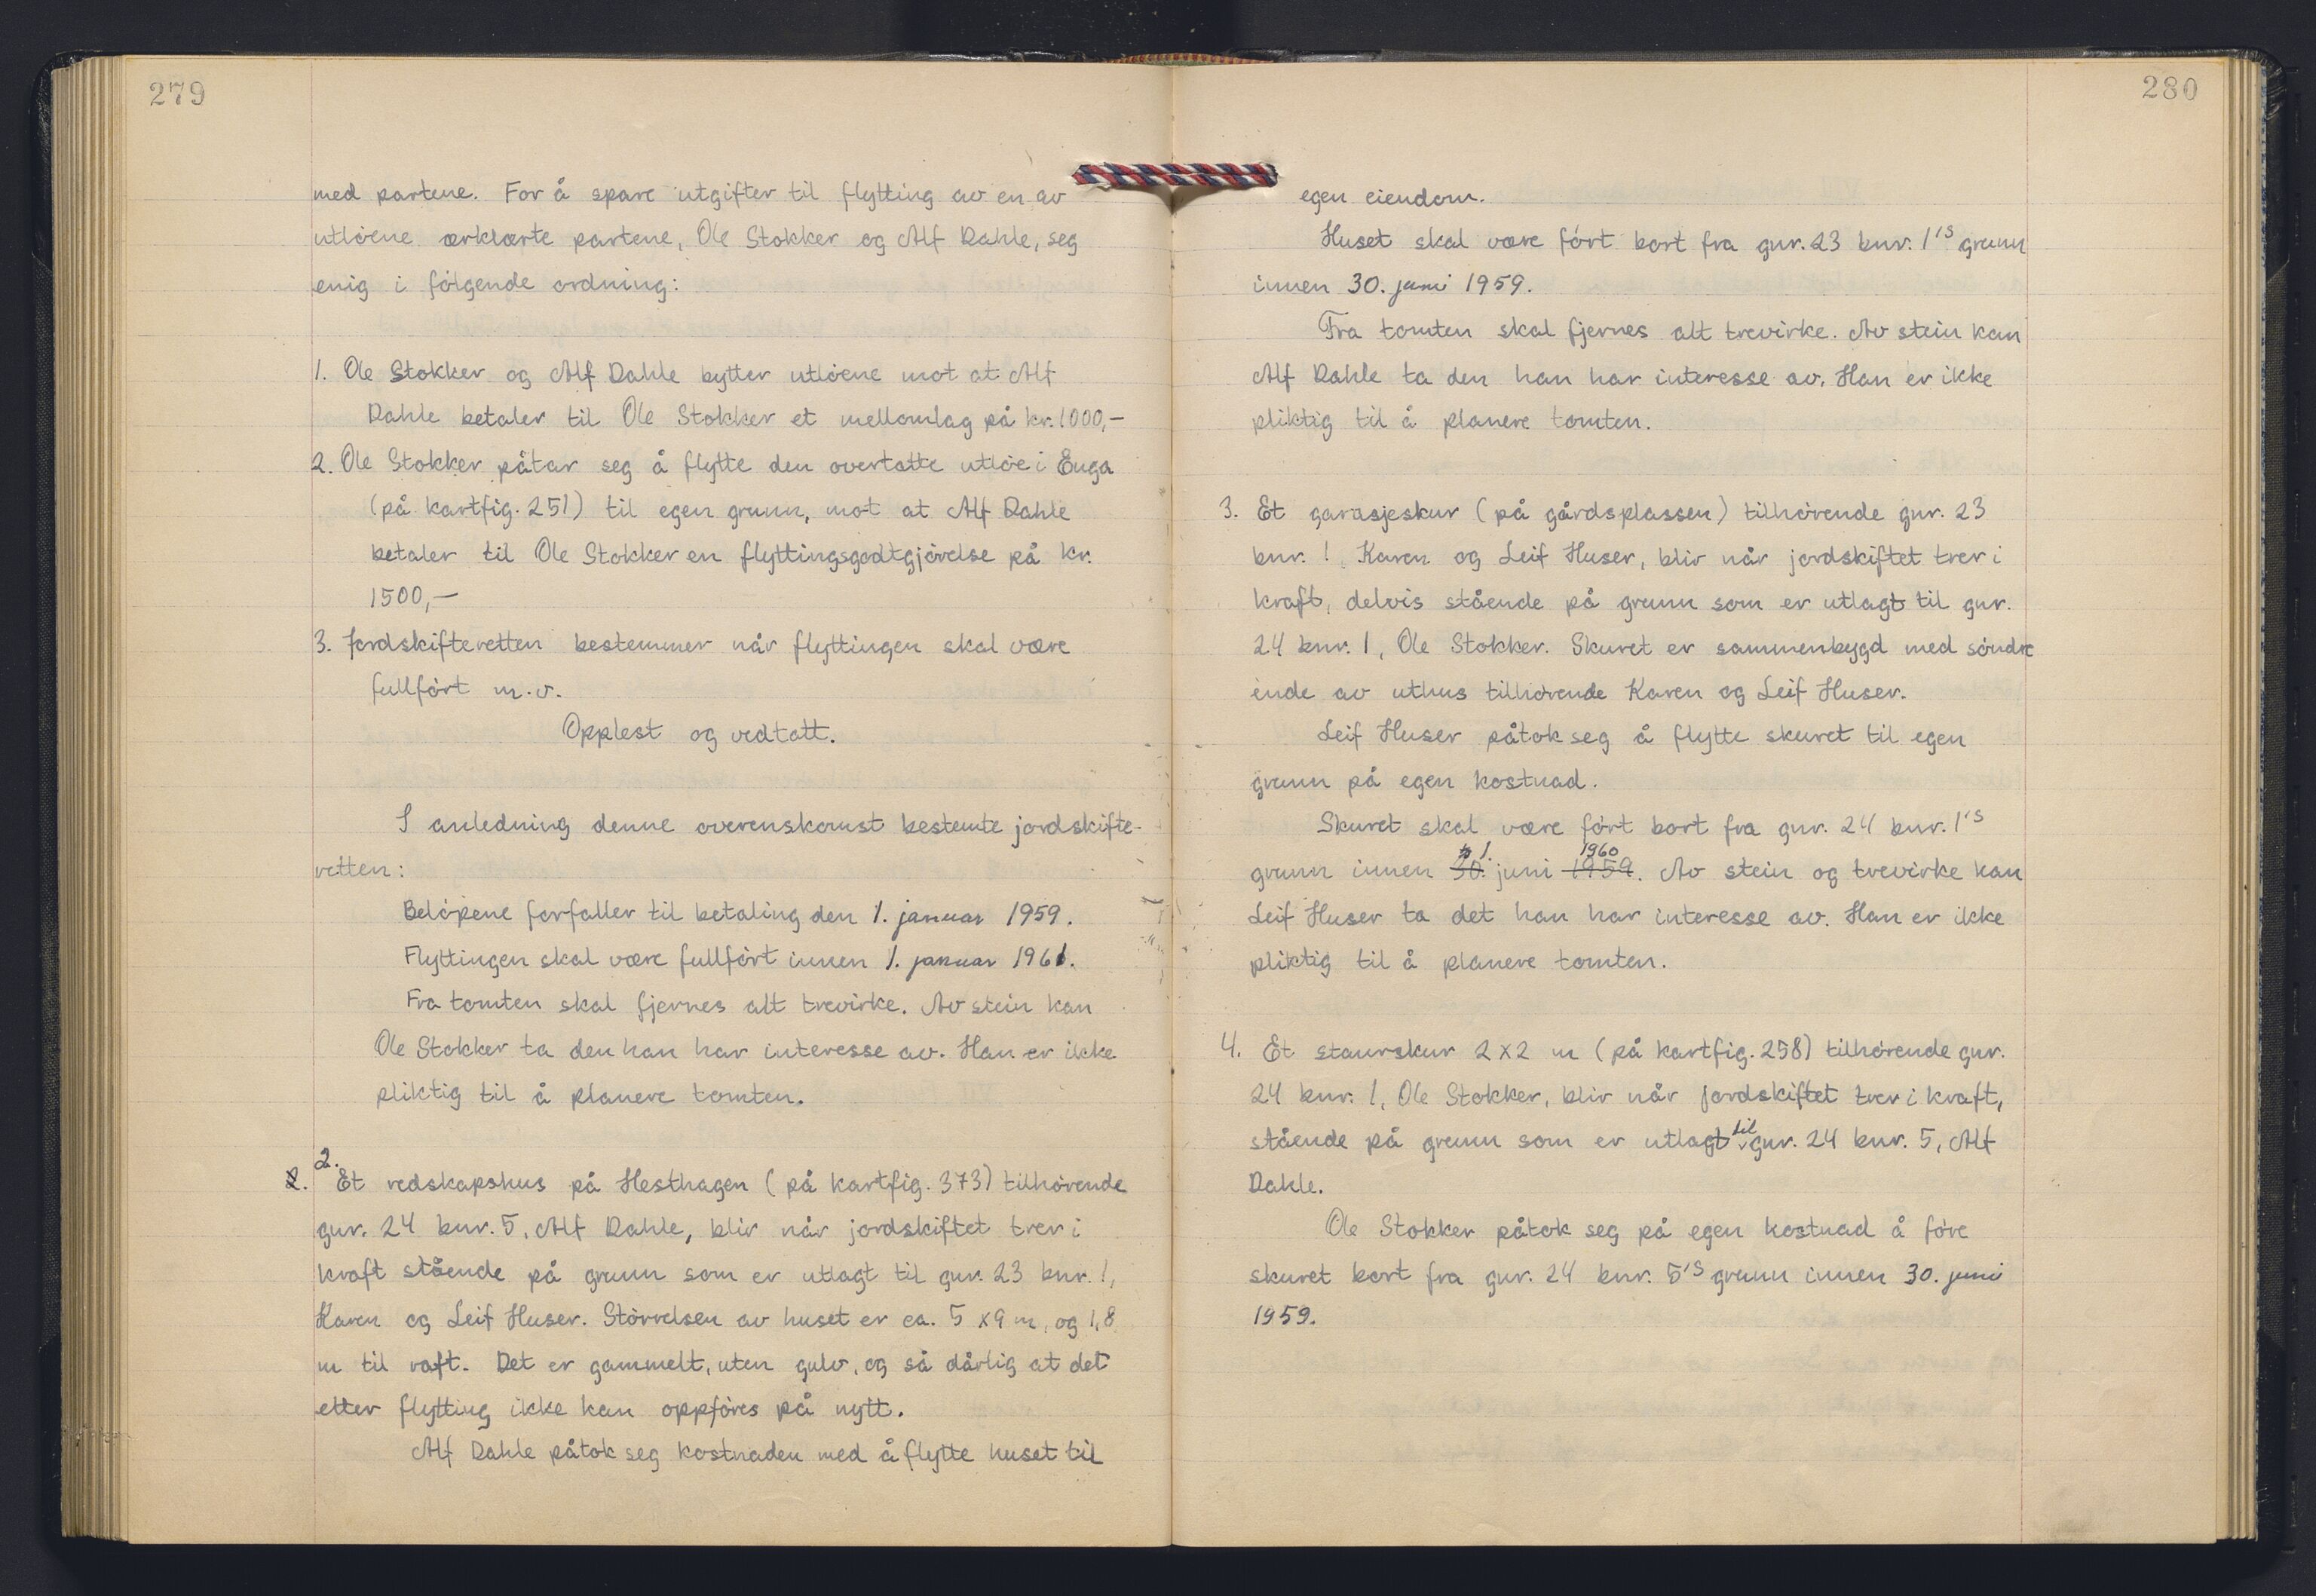 279
med partene. For å spare utgifter til flytting av en av
utlöene ærklærte partene, Ole Stokker og Alf Dahle, seg
enig i fölgende ordning:
1. Ole Stokker og Alf Dahle bytter utlöene mot at Alf
Dahle betaler til Ole Stokker et mellomlag på kr. 1000,-
2. Ole Stokker påtar seg å flytte den overtatte utlöe i Enga
(på kartfig. 251) til egen grunn, mot at Alf Dahle
betaler til Ole Stokker en flyttingsgodtgjörelse på kr.
1500,-
3. Jordskifteretten bestemmer når flyttingen skal være
fullfört m.v.
Opplest og vedtatt.
I anledning denne overenskomst bestemte jordskifte-
retten:
Belöpene forfaller til betaling den 1. januar 1959.
Flyttingen skal være fullfört innen 1. januar 1961.
Fra tomten skal fjernes alt trevirke. Av stein kan
Ole Stokker ta den han har interesse av. Han er ikke
pliktig til å planere tomten.
2.
2. Et redskapshus på Hesthagen (på kartfig. 373) tilhörende
gnr. 24 bnr. 5, Alf Dahle, blir når jordskiftet trer i
kraft stående på grunn som er utlagt til gnr. 23 bnr. 1,
Karen og Leif Huser. Störrelsen av huset er ca. 5 x 9 m, og 1,8
m til raft. Det er gammelt, uten gulv, og så dårlig at det
etter flytting ikke kan oppföres på nytt.
Alf Dahle påtok seg kostnaden med å flytte huset til
280
egen eiendom.
Huset skal være fört bort fra gnr. 23 bnr. 1's grunn
innen 30. juni 1959.
Fra tomten skal fjernes alt trevirke. Av stein kan
Alf Dahle ta den han har interesse av. Han er ikke
pliktig til å planere tomten.
3. Et garasjeskur (på gårdsplassen) tilhörende gnr. 23
bnr. 1, Karen og Leif Huser, blir når jordskiftet trer i
kraft, delvis stående på grunn som er utlagt til gnr.
24 bnr. 1, Ole Stokker. Skuret er sammenbygd med söndre
ende av uthus tilhörende Karen og Leif Huser.
Leif Huser påtok seg å flytte skuret til egen
grunn på egen kostnad.
Skuret skal være fört bort fra gnr. 24 bnr. 1's
1. 1960
grunn innen 30. juni 1959. Av stein og trevirke kan
Leif Huser ta det han har interesse av. Han er ikke
pliktig til å planere tomten.
4. Et staurskur 2 x 2 m (på kartfig. 258) tilhörende gnr.
24 bnr. 1, Ole Stokker, blir når jordskiftet trer i kraft,
stående på grunn som er utlagt til gnr. 24 bnr. 5, Alf
Dahle.
Ole Stokker påtok seg på egen kostnad å före
skuret bort fra gnr. 24 bnr. 5's grunn innen 30. juni
1959.